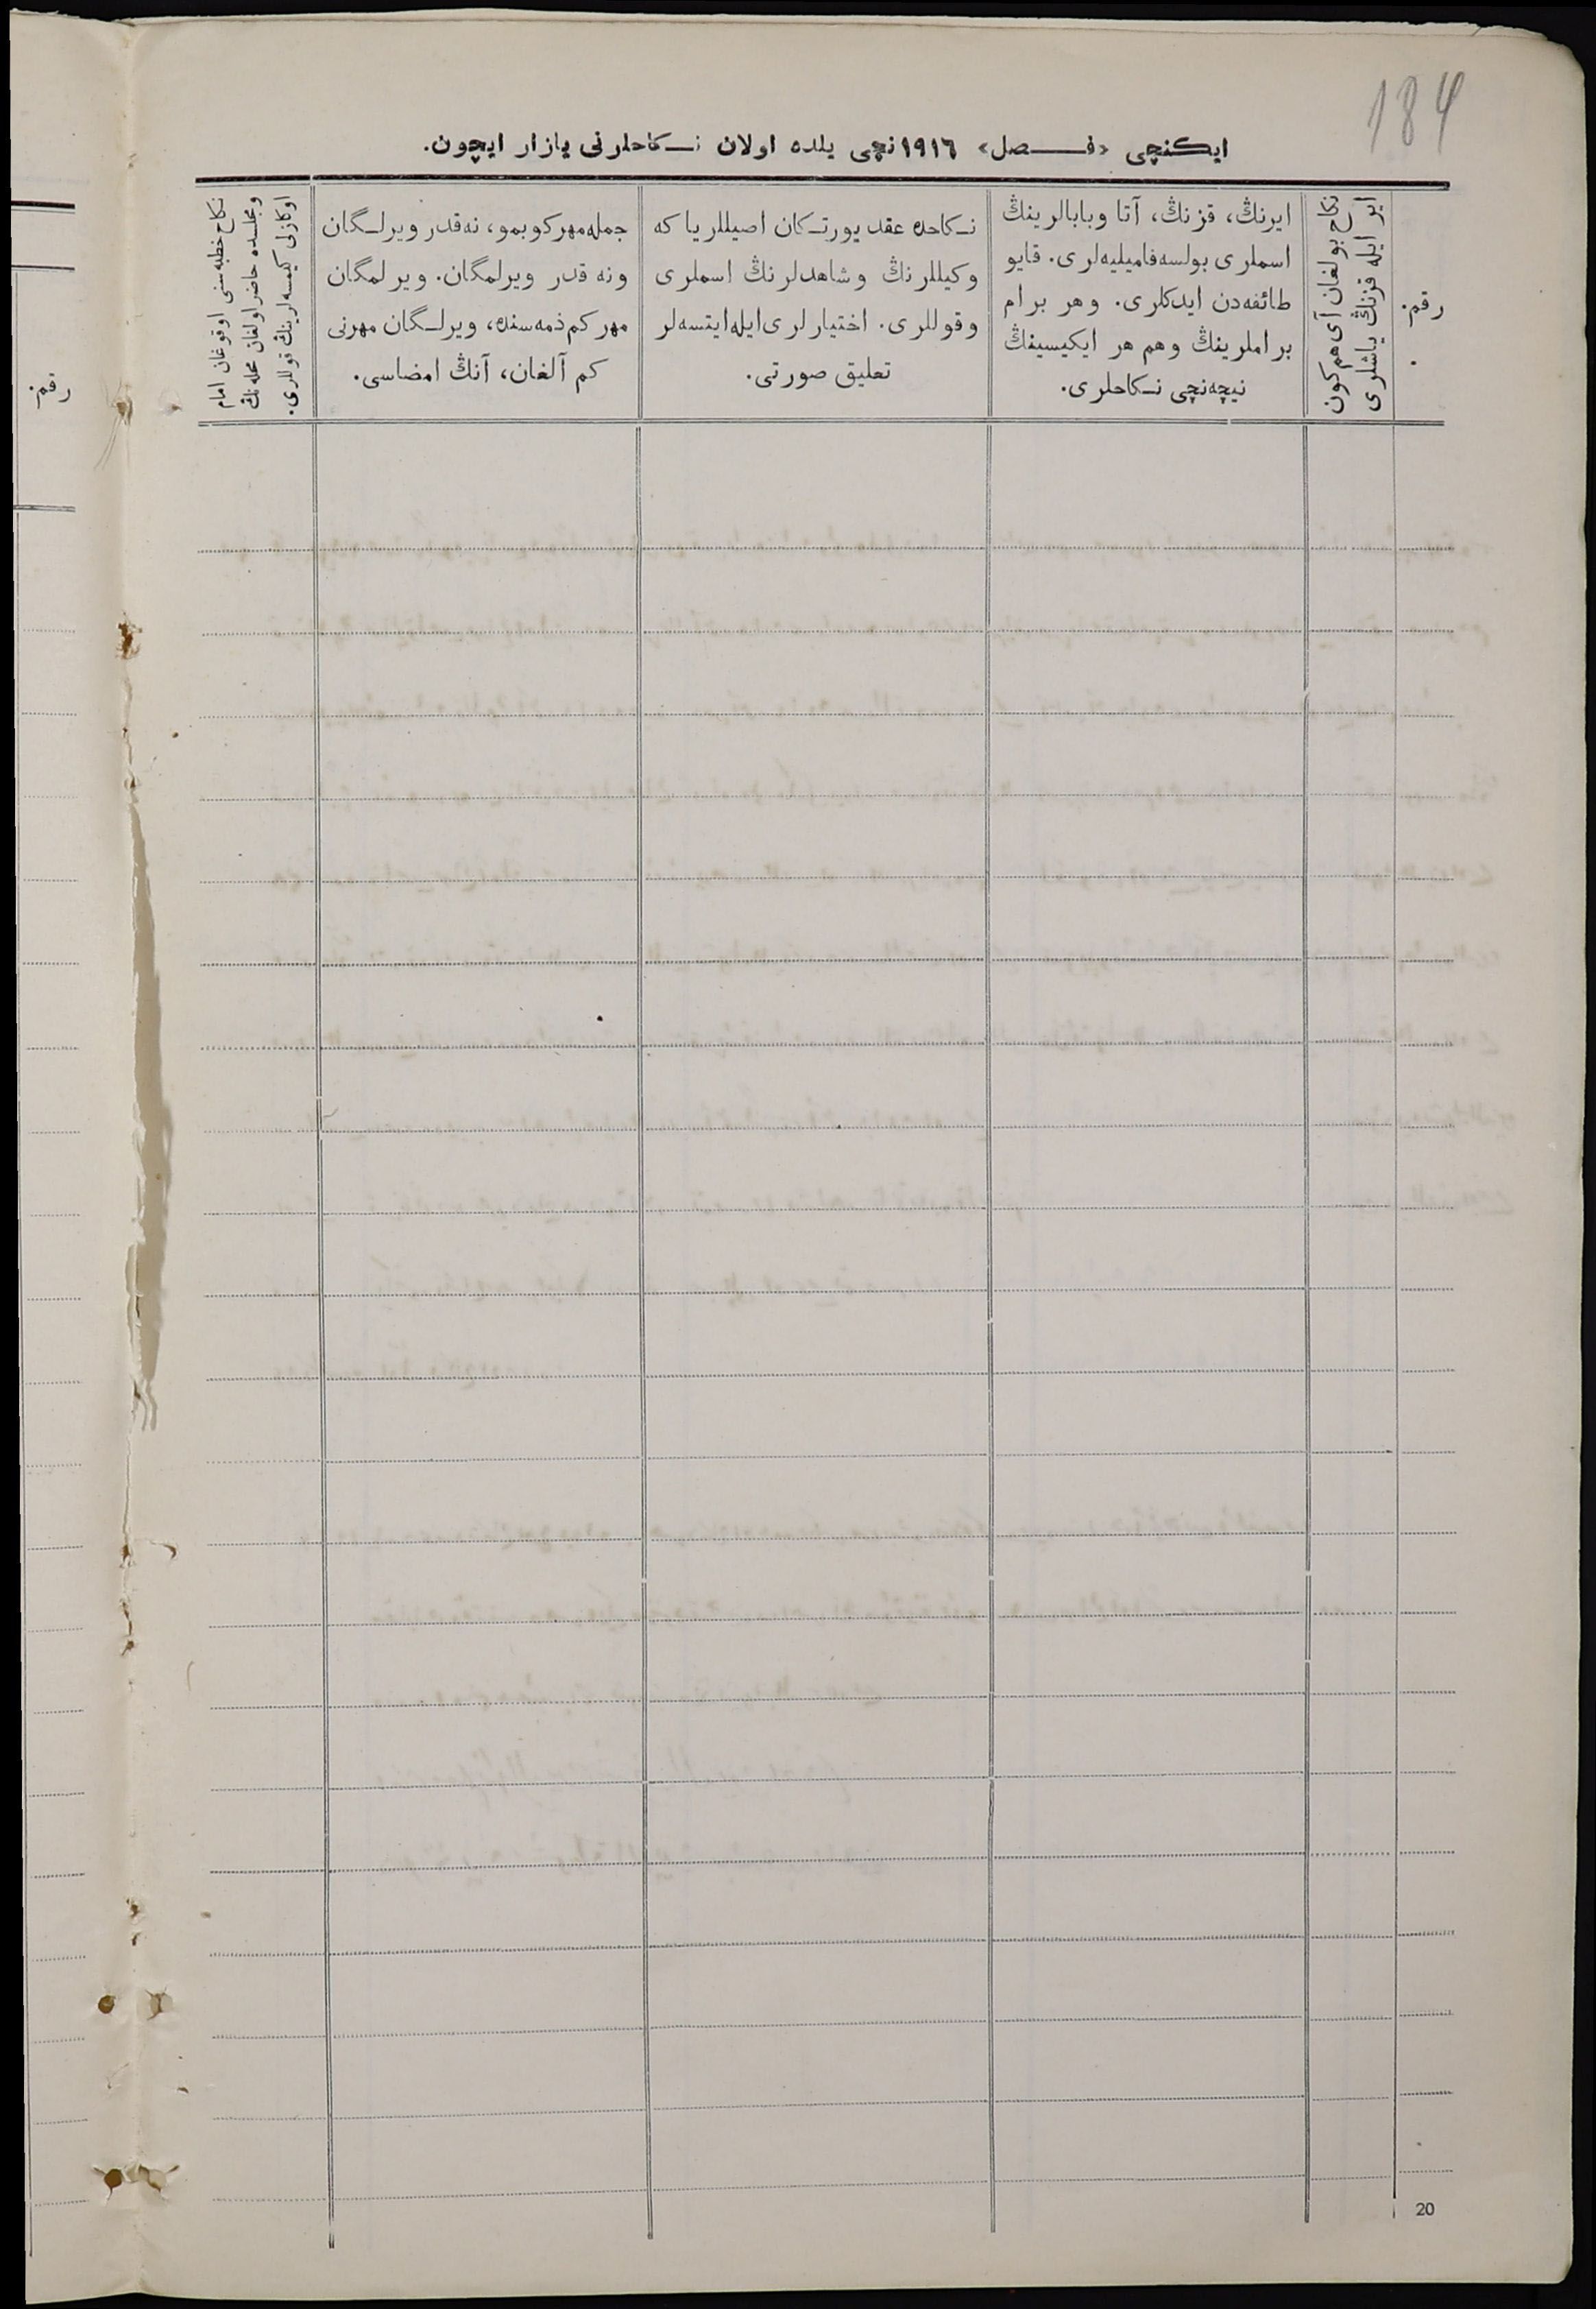 184
ایکنچی «فصل» ۱۹۱٦نچی یلده اولان نکاحلرنی یازار ایچون.
رقم.
نکاح بولغان آی هم کون
ایر ایله قزنڭ یاشلری
ایرنڭ، قزنڭ، آتا وبابالرینڭ
اسملری بولسه فامیلیه‌لری. قایو
طائفه‌دن ایدکلری. وهر برام
براملرینڭ وهم هر ایکیسینڭ
نیچه‌نچی نکاحلری.
نکاحده عقد یورتکان اصیللر یا که
وکیللرنڭ وشاهدلرنڭ اسملری
وقوللری. اختیارلری ایله ایتسه‌لر
تعلیق صورتی.
جمله مهر کوبمو، نه‌قدر ویرلگان
ونه قدر ویرلمگان. ویرلمگان
مهر کم ذمه‌سنده، ویرلگان مهرنی
کم آلغان، آنڭ امضاسی.
نکاح خطبه‌سنی اوقوغان امام
ومجلسده حاضر اولغان محله‌نڭ
اوکازلی کیمسه‌لرینڭ قوللری.
رقم.
20